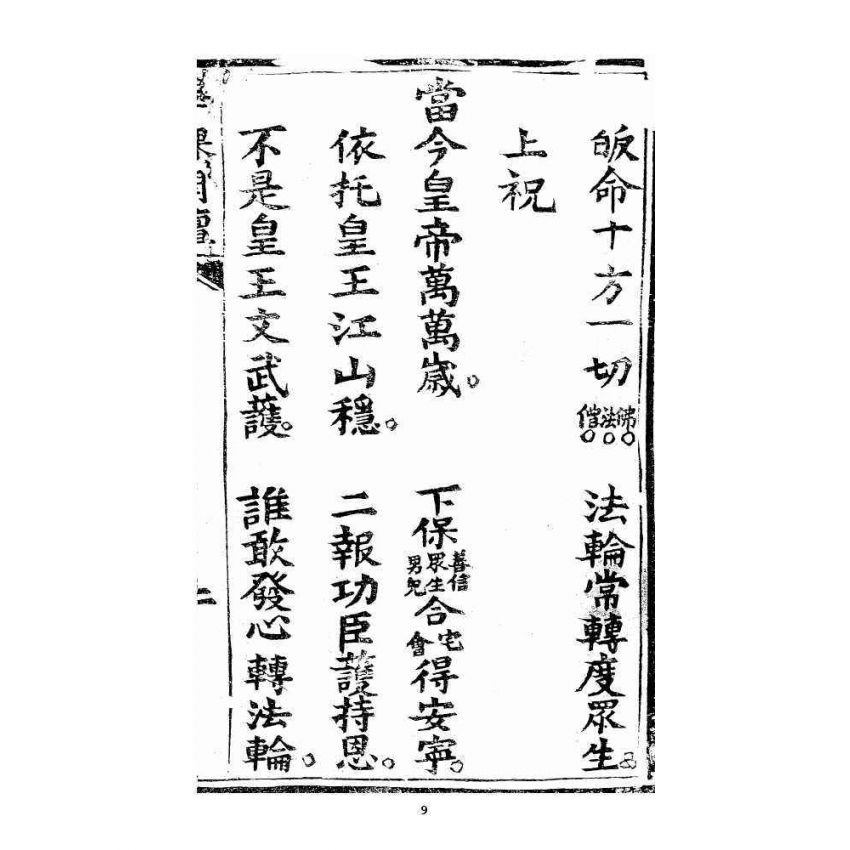 皈命十方一切佛法僧 法輪常轉度眾生
上祝
當今皇帝萬萬歲。 下保善信眾生男兒合宅會得安寧。
依托皇王江山穩。 二報功臣護持恩。
不是皇王文武護。 誰敢發心轉法輪。
二
9